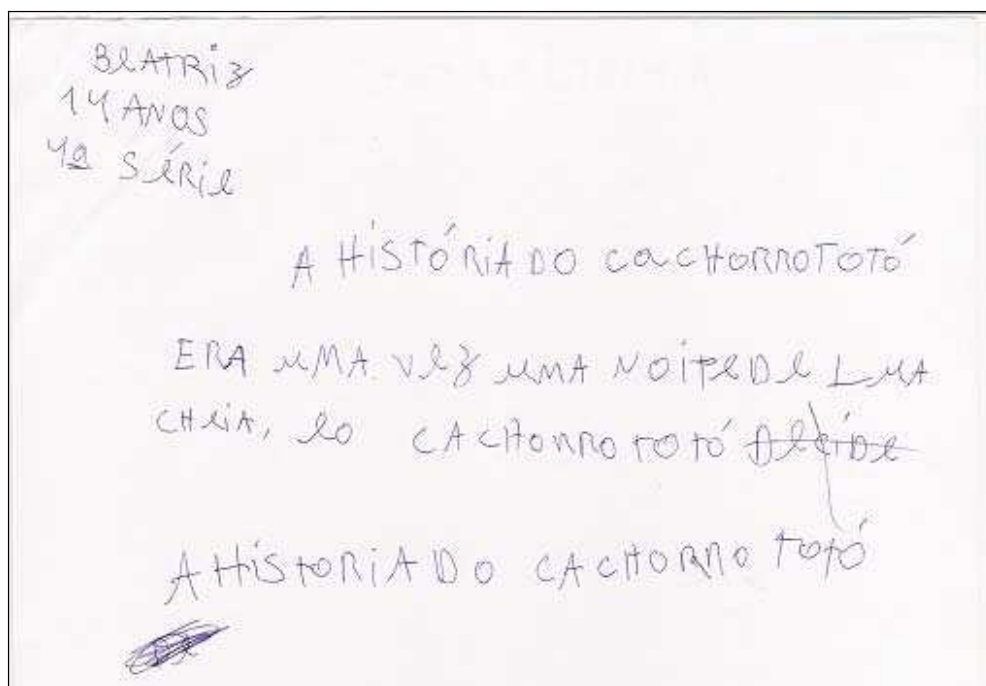 BeATRiz
14 ANOS
4ª SéRie
A HiSTÓRiA DO caCHORROTOTÓ
ERA uMA vez uMA NOiTeDe LuA
CHeiA, eo CACHORROTOTÓ DeciDe
A HiSTORiA DO CACHORRO TOTÓ